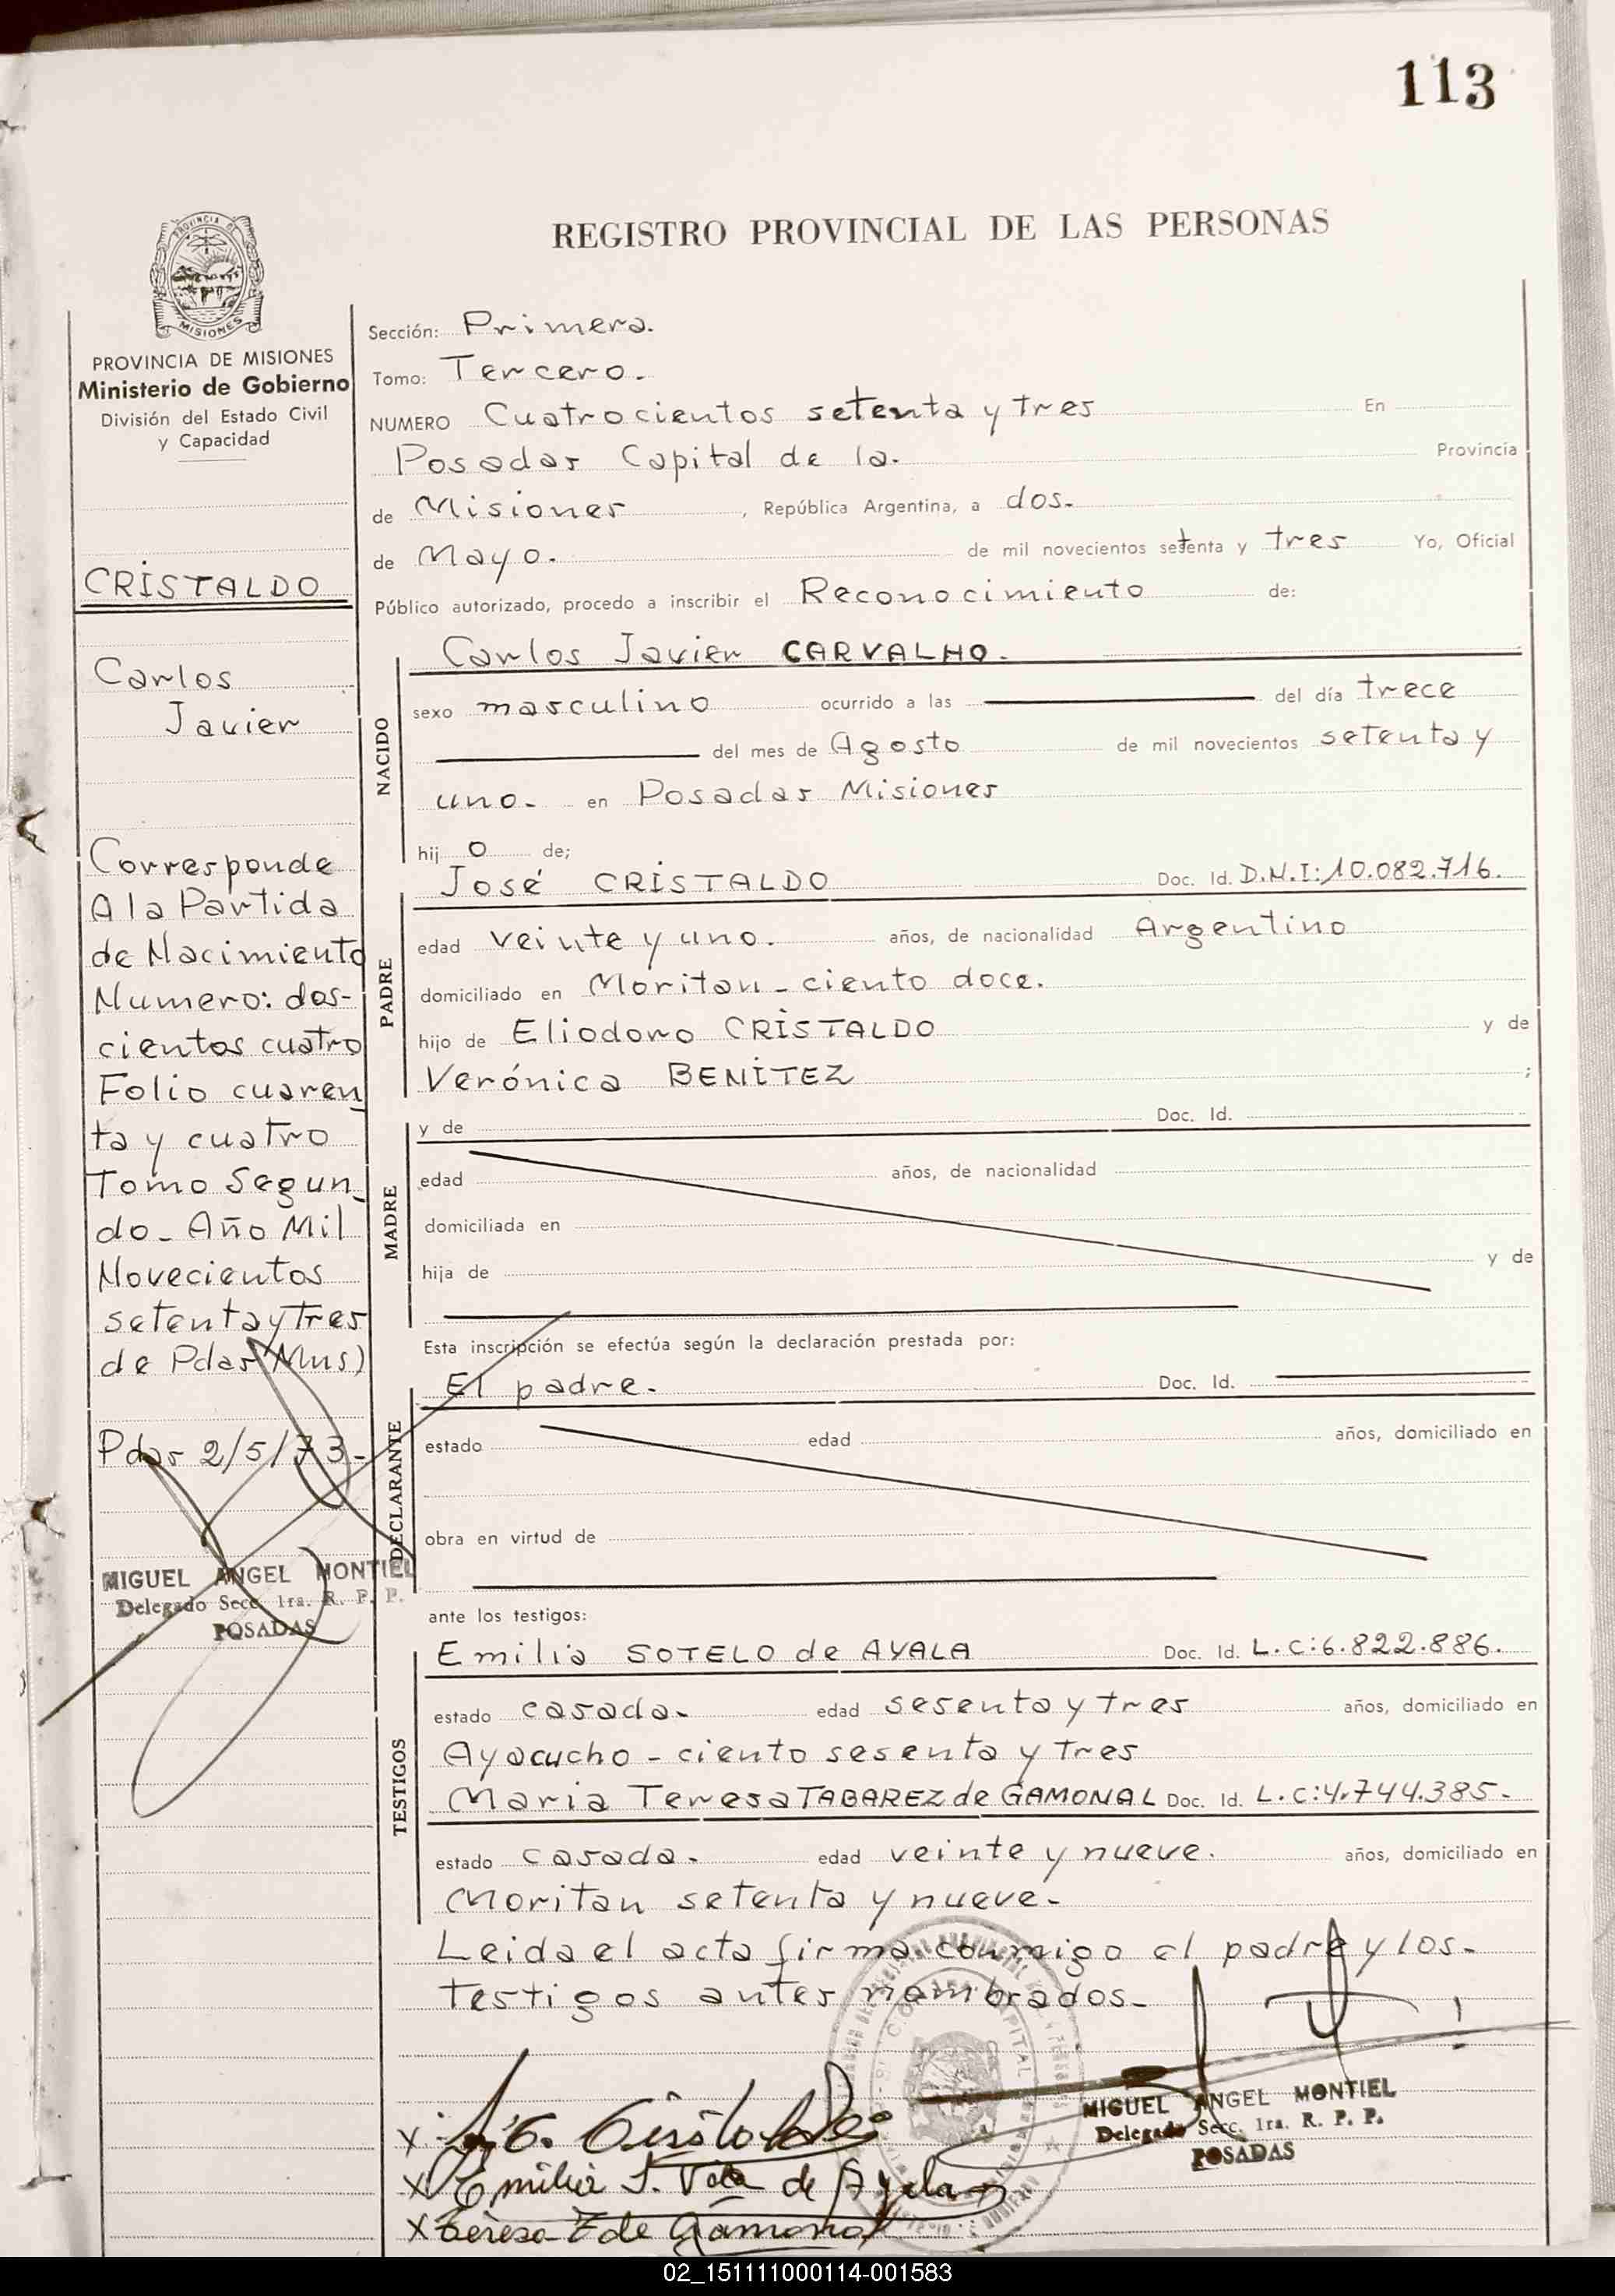 113
REGISTRO PROVINCIAL DE LAS PERSONAS
PROVINCIA DE MISIONES
Ministerio de Gobierno
División del Estado Civil
y Capacidad
CRISTALDO
Carlos
Javier
Corresponde
A la Partida
de Nacimiento
Numero: dos-
cientos cuatro
Folio cuaren_
ta y cuatro
Tomo Segun_
do_ Año Mil
Novecientos
setenta y Tres
de Pdas Mns)
Pdas 2/5/73-
MIGUEL ANGEL MONTIEL
Delegado Secc. 1ra. R. P. P.
POSADAS
Sección: Primera.
Tomo: Tercero.
NUMERO Cuatrocientos setenta y tres En
Posadas Capital de la. Provincia
de Misiones, República Argentina, a dos.
de Mayo. de mil novecientos setenta y tres Yo, Oficial
Público autorizado, procedo a inscribir el Reconocimiento de:
NACIDO
Carlos Javier CARVALHO.
sexo masculino ocurrido a las del día trece
del mes de Agosto de mil novecientos setenta y
uno. en Posadas Misiones
hij o de;
PADRE
José CRISTALDO Doc. Id. D.N.I:10.082.716.
edad veinte y uno. años, de nacionalidad Argentino
domiciliado en Moritan - ciento doce.
hijo de Eliodoro CRISTALDO y de
Verónica BENITEZ ;
MADRE
y de Doc. Id.
edad años, de nacionalidad
domiciliada en
hija de y de
Esta inscripción se efectúa según la declaración prestada por:
DECLARANTE
El padre. Doc. Id.
estado edad años, domiciliado en
obra en virtud de
ante los testigos:
TESTIGOS
Emilia SOTELO de AYALA Doc. Id. L.C:6.822.886.
estado casada. edad sesenta y tres años, domiciliado en
Ayacucho - ciento sesenta y tres
Maria Teresa TABAREZ de GAMONAL Doc. Id. L.C:4.744.385-
estado casada. edad veinte y nueve. años, domiciliado en
Moritan setenta y nueve-
Leida el acta firma conmigo el padre y los-
testigos antes nombrados-
MIGUEL ANGEL MONTIEL
Delegado Secc. 1ra. R. P. P.
POSADAS
x
x Emilia S. Vda de Ayala
x Teresa T de Gamonal
02_151111000114-001583